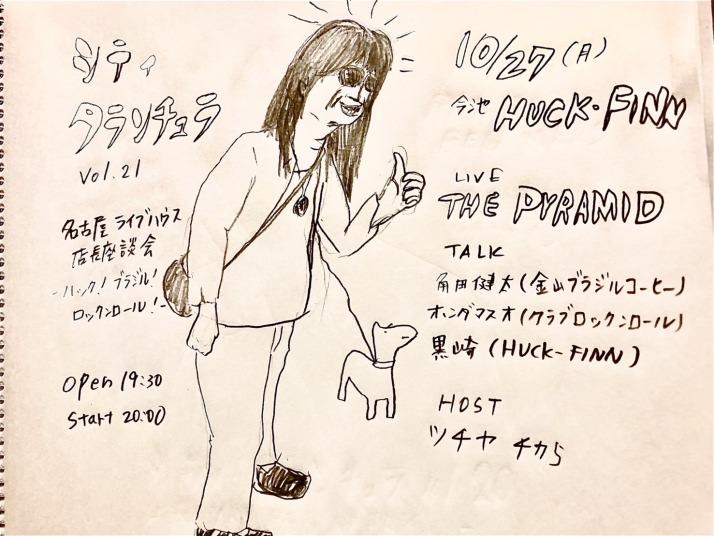 シティ
タランチュラ
vol.21
名古屋 ライブハウス
店長座談会
-ハック! ブラジル!
ロックンロール!-
open 19:30
start 20:00
10/27(月)
今池 HUCK-FINN
LIVE
THE PYRAMID
TALK
角田健太(金山ブラジルコーヒー)
ホンダマスオ(クラブロックンロール)
黒崎(HUCK-FINN)
HOST
ツチヤ チカら